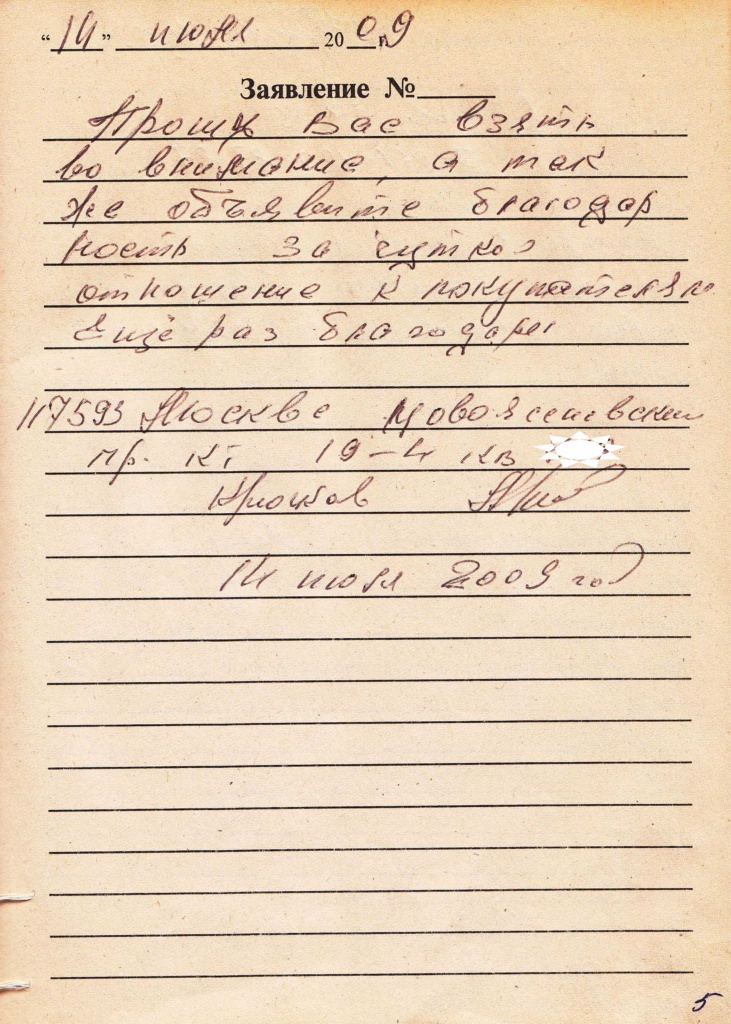 "14" июля 2009 г.
Заявление №
Прошу Вас взять
во внимание, а так
же объявите благодар
ность за чуткое
отношение к покупателям
Ещё раз благодарю
117593 Москва Новоясеневский
пр. кт 19-4 кв
Крючков
14 июля 2009 год
5